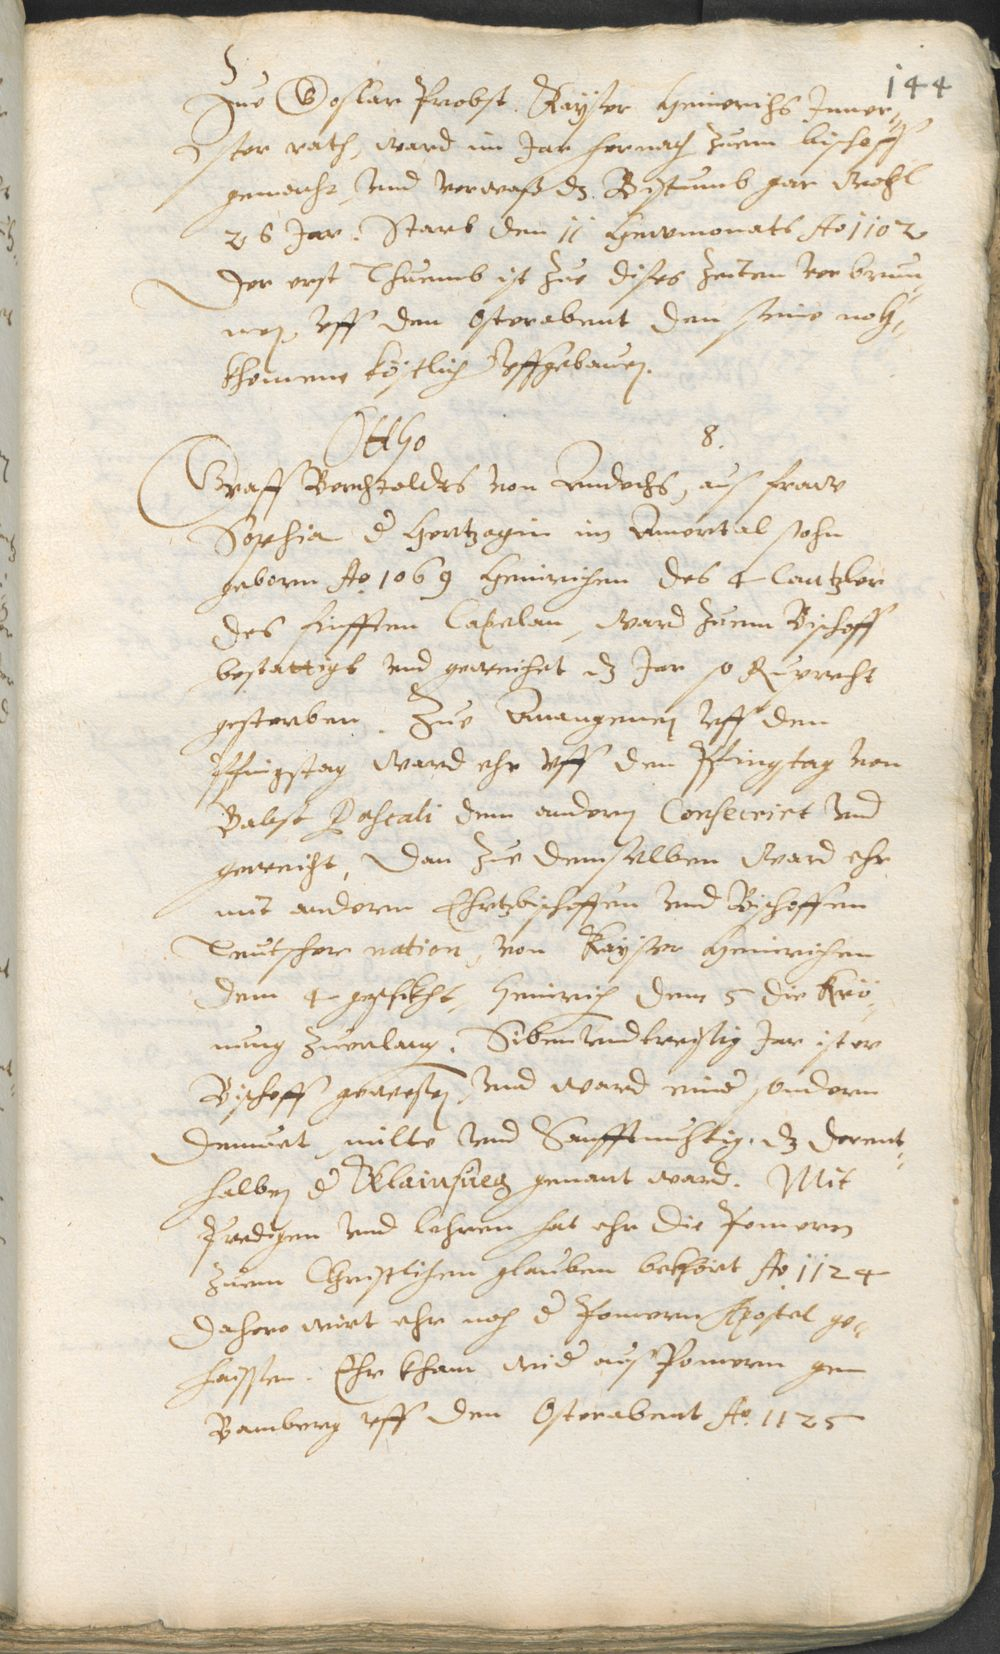 144
Zue Goslar Probst. Kayser Heinrichs Inner-
ster rath, ward im Jar hernach zuem bischoff
gemacht, und verwaß dz. Bistumb gar wohl
26 Jar. Starb den 11 Hewmonats Ao 1102
Der erst Thuemb ist zue dises zeiten verbrun-
nen, uff den Osterabent den seine noch-
khomene köstlich uffgebauen.
Ottho 8.
Graff Berchtoldts von Andechs, aus fraw
Sophia d Hertzogin im Amertal sohn
geborn Ao. 1069 Heinrichen des 4 Cantzler
des finfften Capelan, ward zuem Bischoff
bestattigt und geweichet dz Jar so Ruprecht
gestorben. Zue Anangenen uff den
Pfingstag ward ehr uff den Pfingstag von
Babst Pascali dem andern Consecrirt und
geweicht, Dan zue demselben ward ehr
mit andern Ehrtzbischoffen und Bischoffen
Teutscher nation, von Kayser Heinrichen
dem 4 geschikht, Heinrich dem 5 die Krö-
nung zuerlang. Siben und dreissig Jar ist er
Bischoff gewesen, und ward eins sondern
Demuet, milte und Sanfftmuhtig, dz derent-
halben d genant ward. Mit
Predigen und lehren hat ehr die Pomern
zuem Christlichen glauben bekhört Ao 1124
Dahero wirt ehr noch d Pomern Apostel ge-
haissen. Ehr kham wid aus Pomern gen
Bamberg uff den Osterabent Ao. 1125